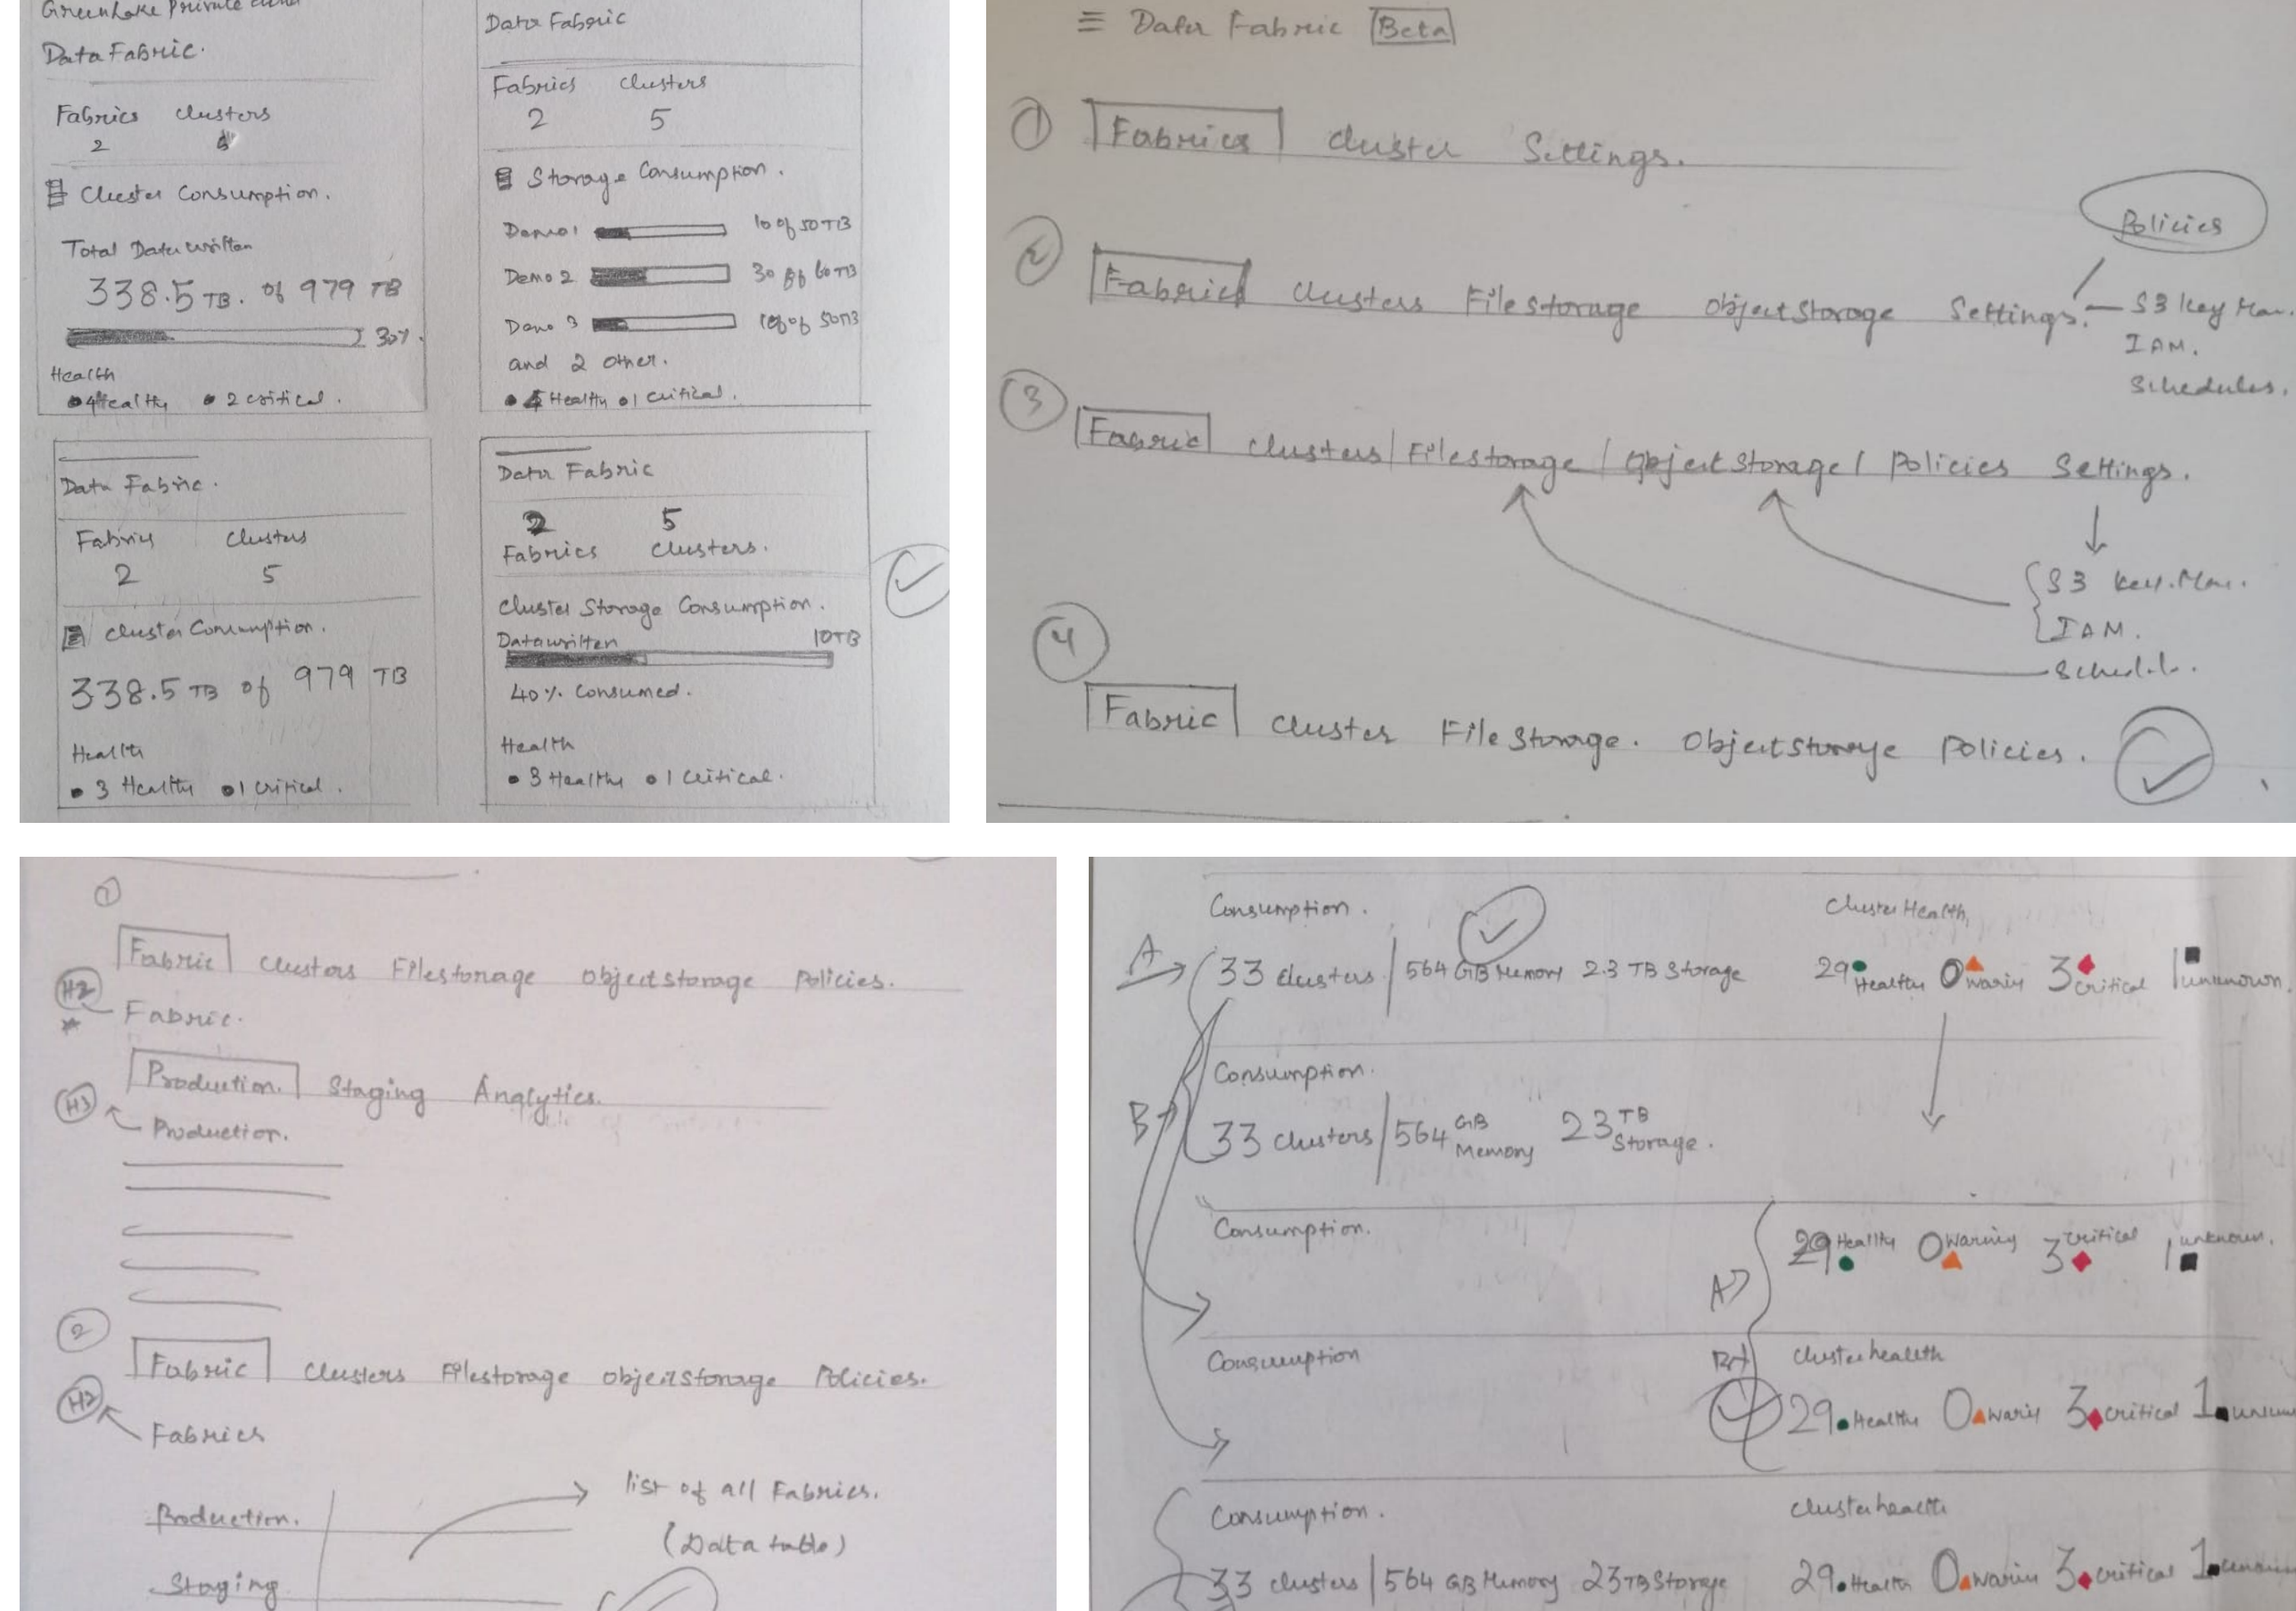 GreenLake Private Cloud
Data Fabric.
Fabrics Clusters
2
Cluster Consumption.
Total Data written
338.5 TB. of 979 TB
30%.
Health
4 Healthy 2 critical.
Data Fabric
Fabrics Clusters
2 5
Storage Consumption.
Demo 1 10 of 50 TB
Demo 2 30 of 60 TB
Demo 3 of 50TB
and 2 other.
4 Healthy 1 Critical.
Data Fabric.
Fabrics Clusters
2 5
Cluster Consumption.
338.5 TB of 979 TB
Health
3 Healthy 1 critical.
Data Fabric
2 5
Fabrics Clusters.
Cluster Storage Consumption.
Data written 10TB
40% Consumed.
Health
3 Healthy 1 Critical.
Data Fabric Beta
1 Fabrics Cluster Settings.
Policies
2 Fabrics Clusters File Storage Object Storage Settings. S3 Key Man.
IAM.
Schedules.
3 Fabric Clusters | File storage | Object Storage | Policies Settings.
S3 Key. Man.
IAM.
4
Fabric Cluster File Storage. Object storage Policies.
1
Fabric Clusters File storage Object storage Policies.
H2
Fabric.
Production. Staging Analytics.
H3
Production.
2
Fabric Clusters File storage Object storage Policies.
H2
Fabrics
list of all Fabrics.
Production.
(Data table)
Staging
Consumption. Cluster Health
A 33 clusters | 564 GB Memory 2.3 TB Storage 29 Healthy 0 3 critical 1 unknown.
Consumption.
B 33 clusters | 564 GB Memory 23 TB Storage.
Consumption. 29 Healthy 0 Warning 3 critical 1 unknown.
A
Consumption Cluster health
29 Healthy 0 3 critical 1
Consumption. Cluster health
33 clusters | 564 GB Memory 23 TB Storage 29 Health 0 3 critical 1